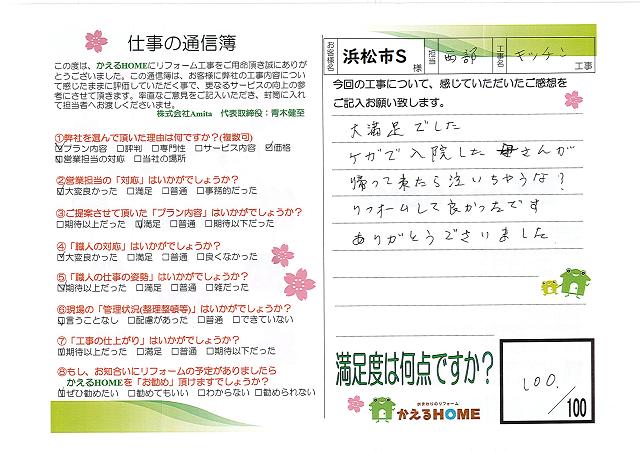 仕事の通信簿
この度は、かえるHOMEにリフォーム工事をご用命頂き誠にありが
とうございました。この通信簿は、お客様に弊社の工事内容につい
て感じたままに評価していただく事で、更なるサービスの向上の参
考にさせて頂きます。率直なご意見をご記入いただき、封筒に入れ
て担当者へお渡しくださいませ。
株式会社Amita 代表取締役：青木健至
①弊社を選んで頂いた理由は何ですか?(複数可)
☑プラン内容 □評判 □専門性 □サービス内容 ☑価格
☑営業担当の対応 □当社の場所
②営業担当の「対応」はいかがでしょうか?
☑大変良かった □満足 □普通 □事務的だった
③ご提案させて頂いた「プラン内容」はいかがでしょうか?
□期待以上だった ☑満足 □普通 □期待以下だった
④「職人の対応」はいかがでしょうか?
☑大変良かった □満足 □普通 □良くなかった
⑤「職人の仕事の姿勢」はいかがでしょうか?
☑期待以上だった □満足 □普通 □雑だった
⑥現場の「管理状況(整理整頓等)」はいかがでしょうか?
☑言うことなし □配慮があった □普通 □できていない
⑦「工事の仕上がり」はいかがでしょうか?
☑期待以上だった □満足 □普通 □期待以下だった
⑧もし、お知合いにリフォームの予定がありましたら
かえるHOMEを「お勧め」頂けますでしょうか?
☑ぜひ勧めたい □勧めてもいい □わからない □勧められない
お客様名 浜松市S 様 担当 西部 工事名 キッチン 工事
今回の工事について、感じていただいたご感想を
ご記入お願い致します。
大満足でした
ケガで入院した母さんが
帰って来たら泣いちゃうな?
リフォームして良かったです
ありがとうございました
満足度は何点ですか?
100. /100
おまわりのリフォーム
かえるHOME